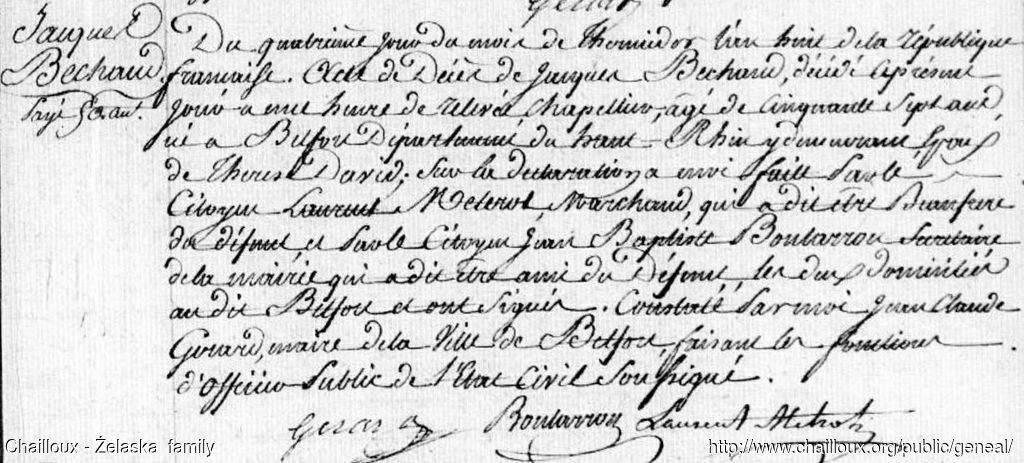 Jacques
Bechaud
Payé 50. au.
Du quatrieme jour du mois de Thermidor l'an huit de la République
francaise. Acte de Décès de Jacques Bechaud, décédé a présent
jour a une heure de relevée Chapellier, agé de Cinquante Sept ans
né a Belfort Département du haut-Rhin y demeurant Epoux
de Therese David. Sur la declaration a moi faitte par le
Citoyen Laurent Meterot, Marchand, qui a dit être Beaufrere
du défunt et par le Citoyen Jean Baptiste Boutarron Secretaire
de la mairie qui a dit être ami du Défunt, les deux domiciliés
au dit Belfort et ont signés. Constaté par moi Jean Claude
Gerard, maire de la Ville de Belfort, faisant les fonctions
d'officier public de l'Etat Civil Soussigné.
Gerard Boutarron Laurent Metrot
Chailloux - Żelaska family
http://www.chailloux.org/public/geneal/